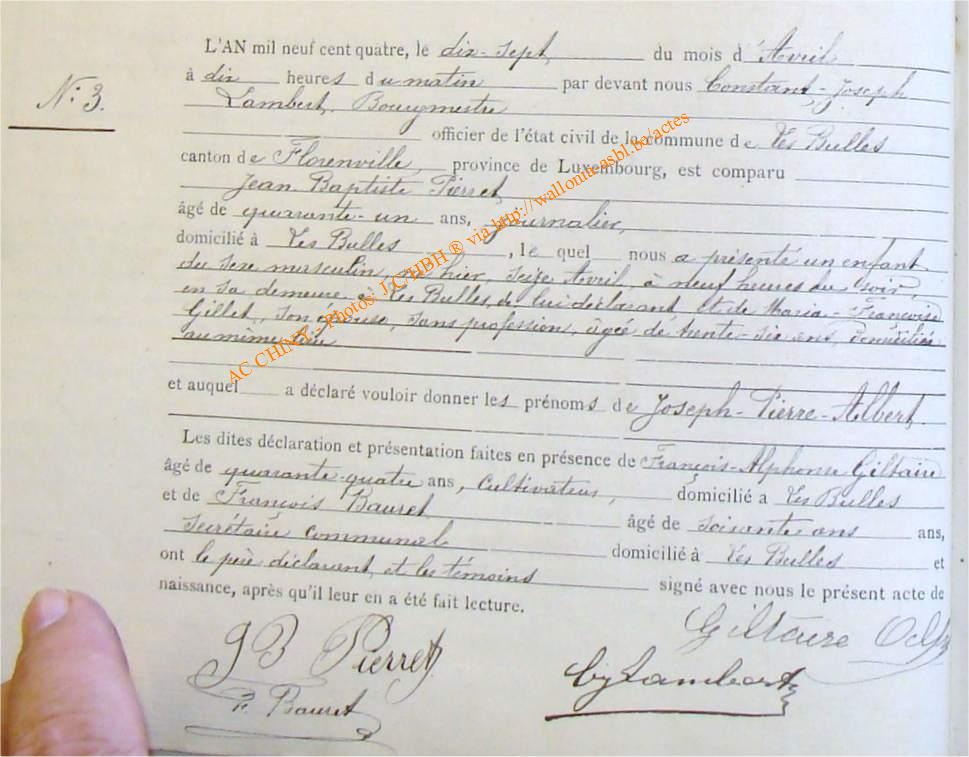 N: 3.
L'AN mil neuf cent quatre, le dix-sept du mois d'Avril
à dix heures du matin par devant nous Constant-Joseph
Lambert, Bourgmestre
officier de l'état civil de la commune de Les Bulles
canton de Florenville, province de Luxembourg, est comparu
Jean Baptiste Pierret,
âgé de quarante-un ans, journalier,
domicilié à Les Bulles, le quel nous a présenté un enfant
du sexe masculin, né hier, seize Avril, à neuf heures du soir,
en sa demeure à Les Bulles, de lui déclarant et de Maria-Françoise
Gillet, son épouse, sans profession, âgée de trente-six ans, domiciliée
au même lieu
et auquel a déclaré vouloir donner les prénoms de Joseph-Pierre-Albert.
Les dites déclaration et présentation faites en présence de François-Alphonse Giltaire
âgé de quarante-quatre ans, Cultivateur, domicilié à Les Bulles
et de François Bauret âgé de soixante ans ans,
secrétaire communal domicilié à Les Bulles et
ont le père déclarant et les témoins signé avec nous le présent acte de
naissance, après qu'il leur en a été fait lecture.
Giltaire
J B Pierret
Lambert
F. Bauret
AC CHINY - Photos J.C. HBH ® via http://wallonie.asbl.be/actes